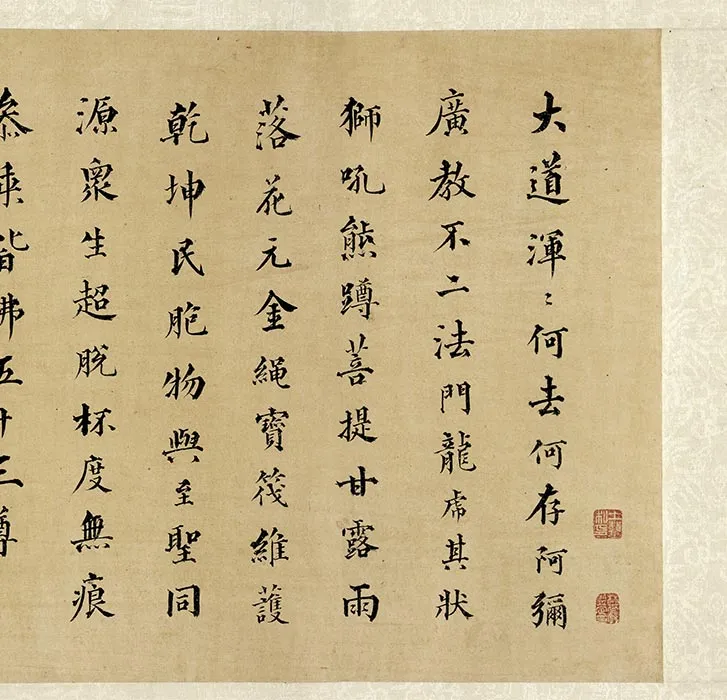 大道渾〻何去何存阿彌
廣教不二法門龍虎其狀
獅吼熊蹲菩提甘露雨
落花元金繩寶筏維䕶
乾坤民胞物與至聖同
源衆生超脫杯度無痕
叅乘皆佛五十三尊